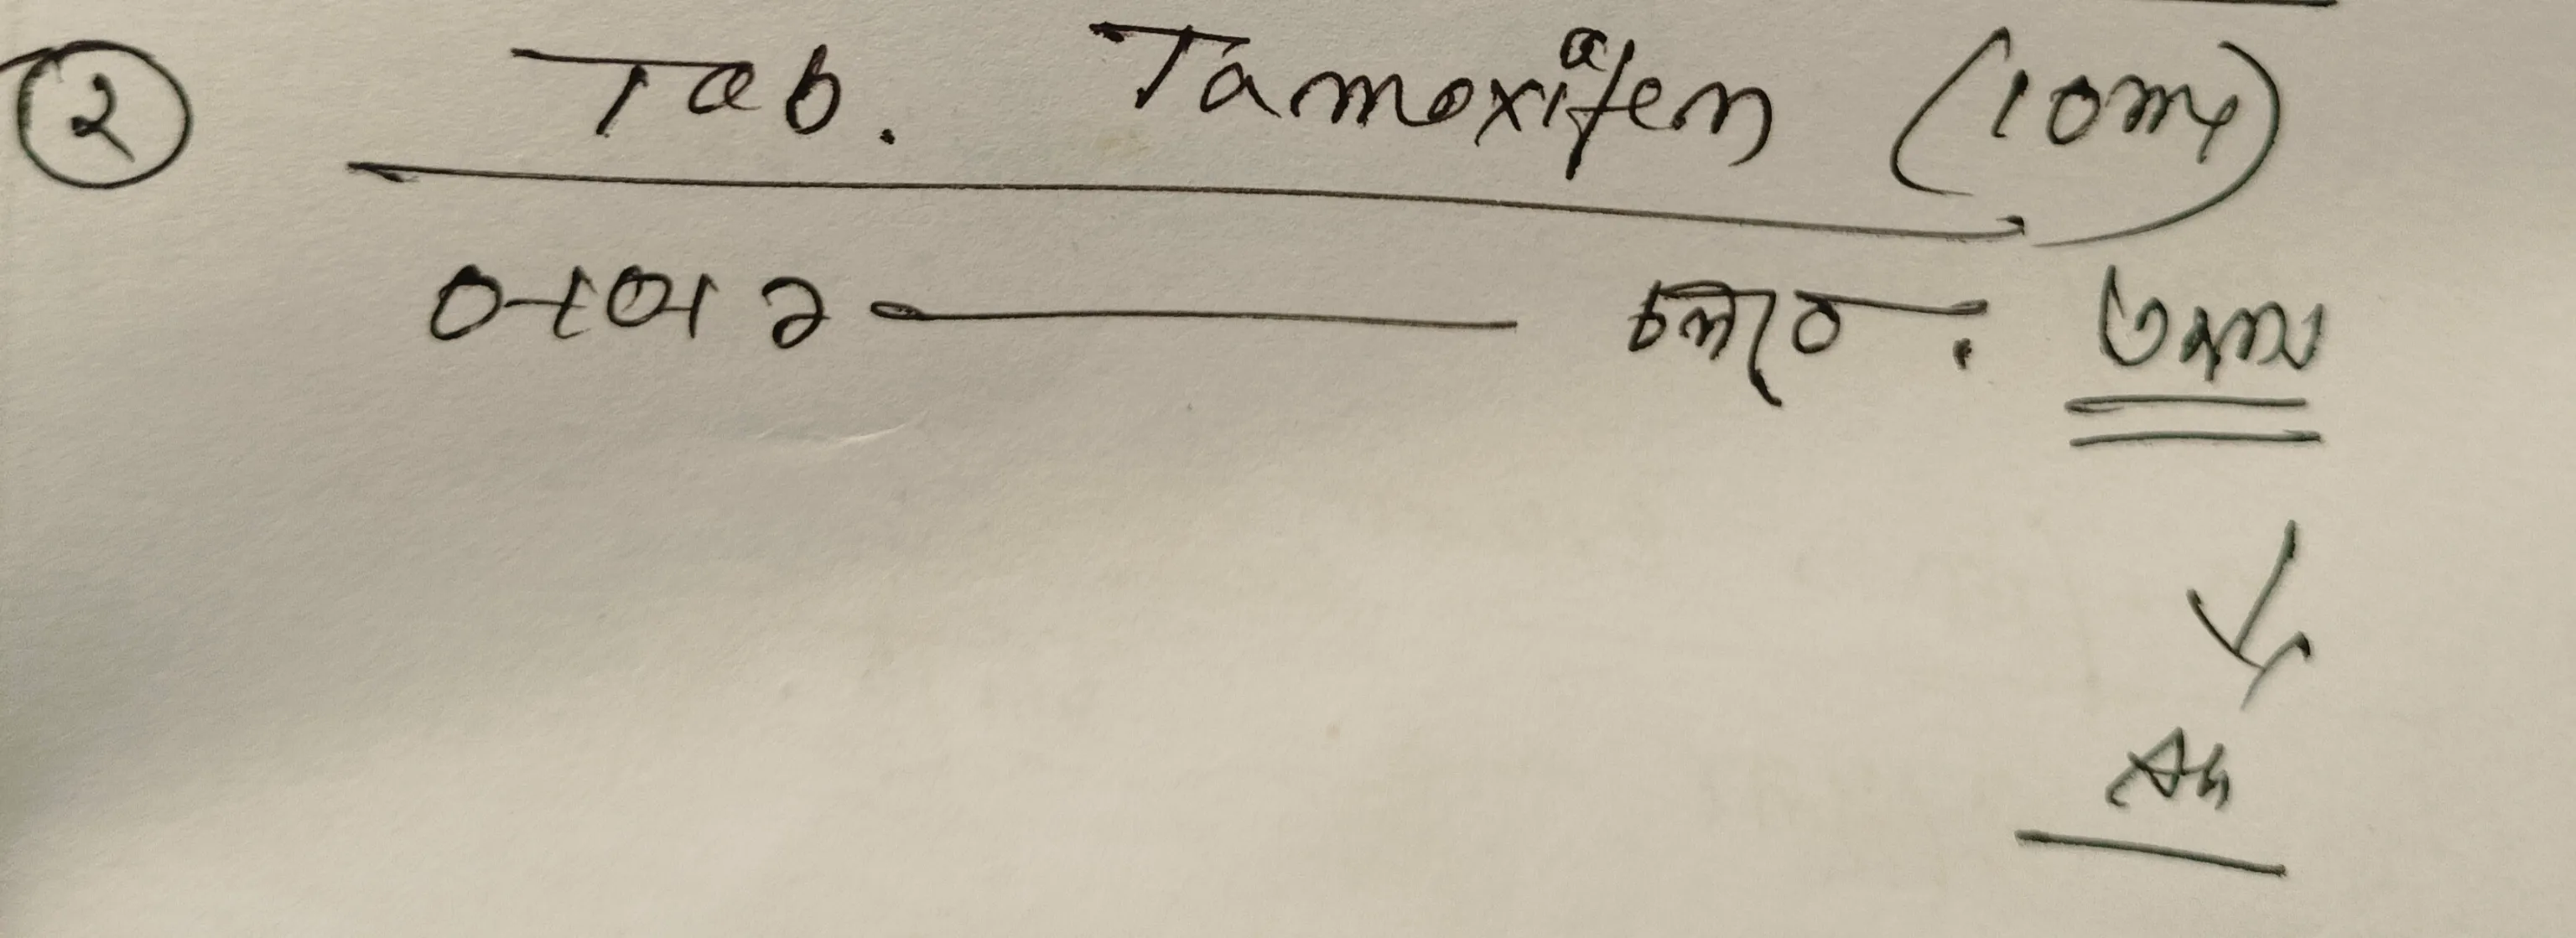 ২ Tab. Tamoxifen (10mg)
০+০+১ ——— চলবে. ৩ মাস